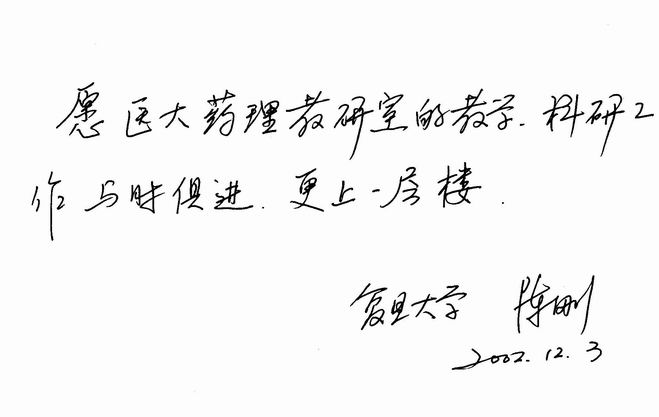 愿医大药理教研室的教学、科研工
作与时俱进、更上一层楼.
复旦大学 陈刚
2002.12.3